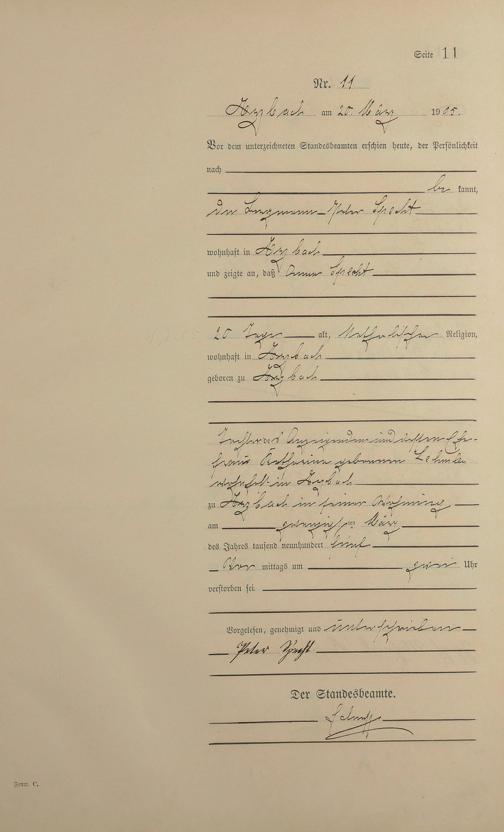 Seite 11
Nr. 11
am 20. März 1905.
Vor dem unterzeichneten Standesbeamten erschien heute, der Persönlichkeit
nach
be kannt,
der Bergmann Peter Specht
wohnhaft in
und zeigte an, daß Anna Specht
20 Tage alt, katholischer Religion,
wohnhaft in
geboren zu
Tochter des Anzeigenden und dessen Ehe-
frau Katharina geborenen
wohnhaft in
zu in seiner Wohnung
am zwanzigsten März
des Jahres tausend neunhundert fünf
Vor mittags um zwei Uhr
verstorben sei
Vorgelesen, genehmigt und unterschrieben
Peter Specht
Der Standesbeamte.
Form. C.